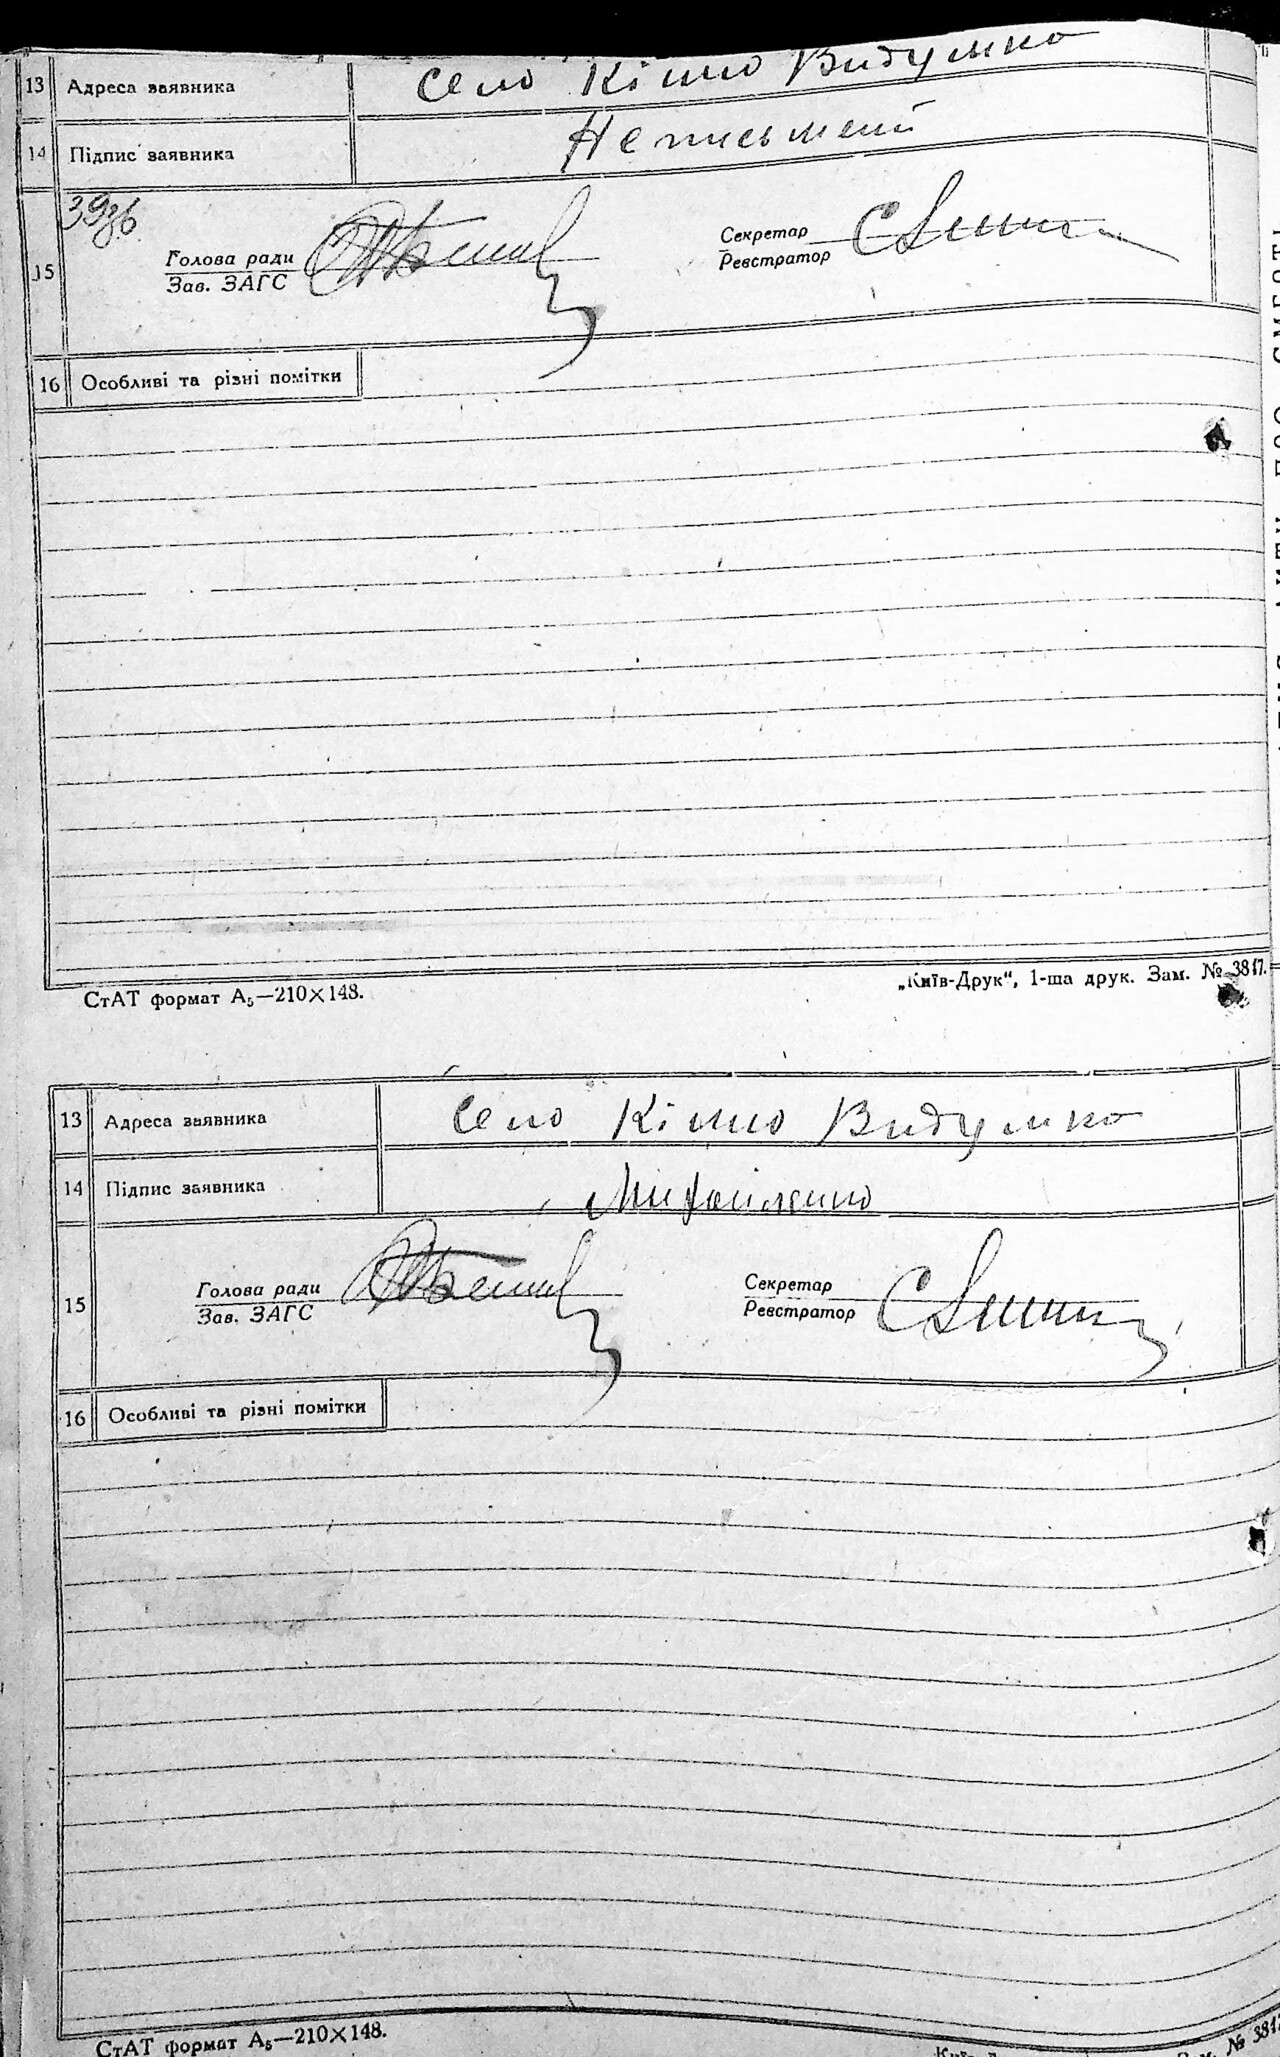 13 Адреса заявника Село Кішно Видумка
14 Підпис заявника Неписьмений
39зв
15 Голова ради Секретар
Зав. ЗАГС Реєстратор
16 Особливі та різні помітки
СтАТ формат А₅—210×148. „Київ-Друк“, 1-ша друк. Зам. № 3817.
13 Адреса заявника Село Кішно Видумка
14 Підпис заявника Михайленко
15 Голова ради Секретар
Зав. ЗАГС Реєстратор
16 Особливі та різні помітки
СтАТ формат А₅—210×148. № 3817